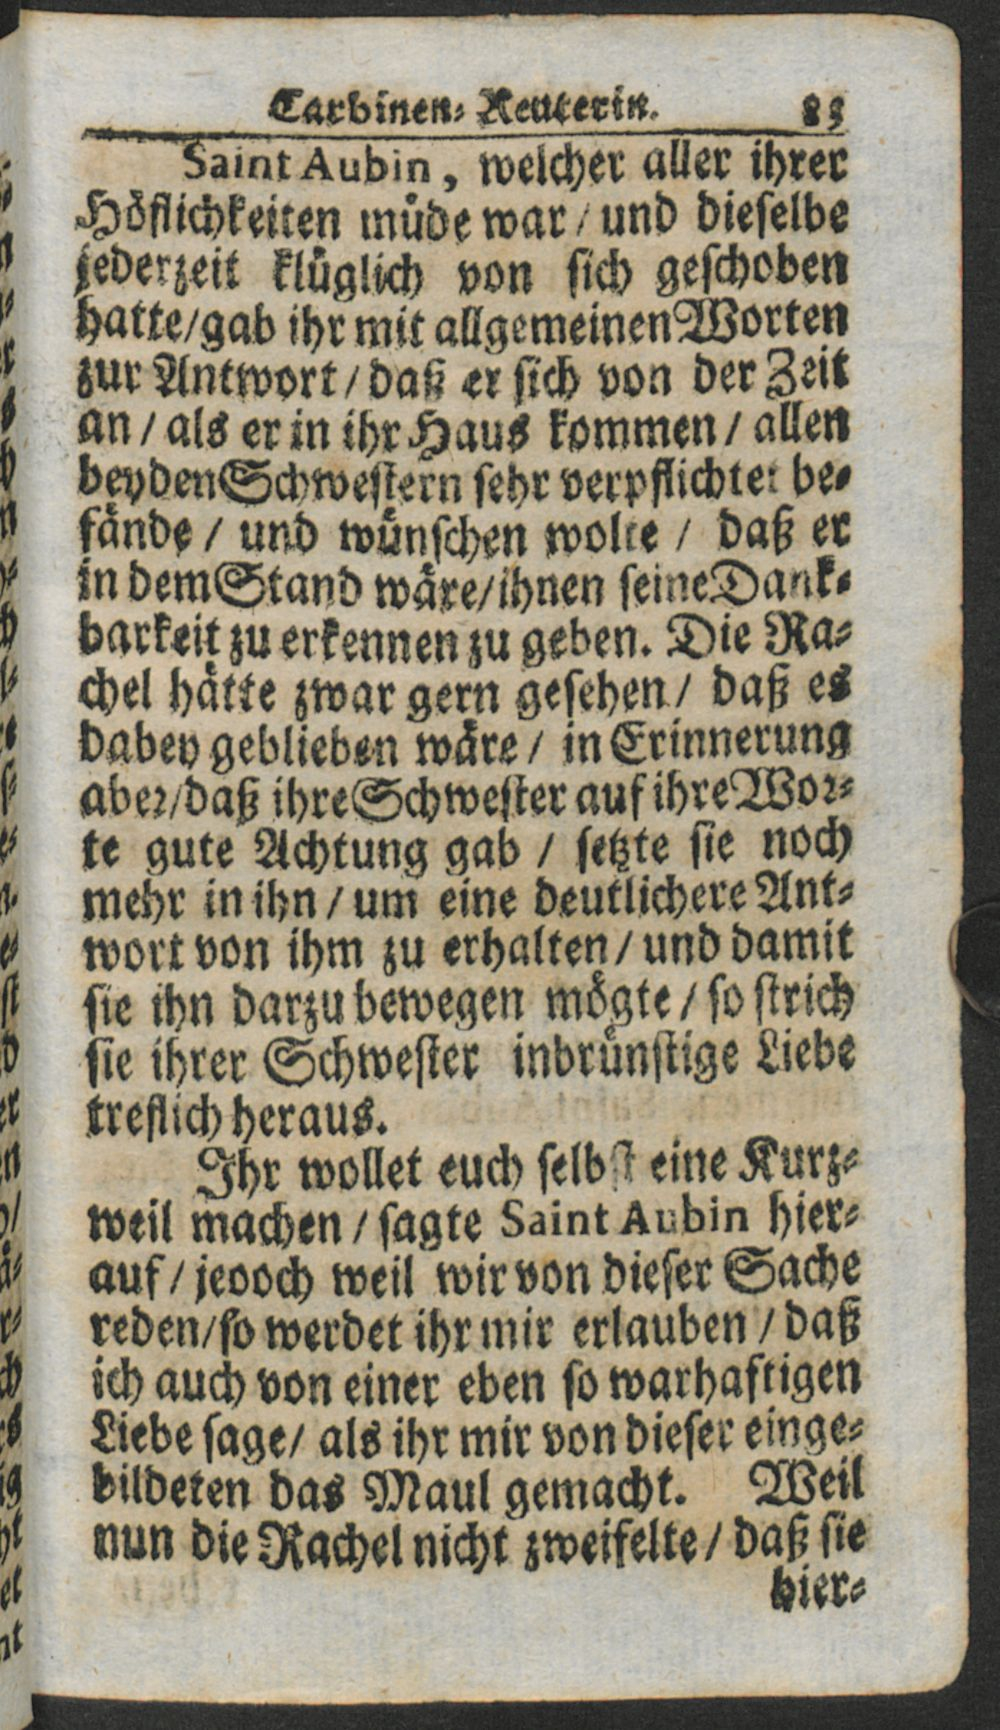 Carbinen⸗Reuterin. 83
Saint Aubin, welcher aller ihrer
Höflichkeiten müde war / und dieselbe
jederzeit klüglich von sich geschoben
hatte/gab ihr mit allgemeinen Worten
zur Antwort / daß er sich von der Zeit
an / als er in ihr Haus kommen / allen
beyden Schwestern sehr verpflichtet be⸗
fände / und wünschen wolte / daß er
in dem Stand wäre/ihnen seine Dank⸗
barkeit zu erkennen zu geben. Die Ra⸗
chel hätte zwar gern gesehen / daß es
dabey geblieben wäre / in Erinnerung
aber/daß ihre Schwester auf ihre Wor⸗
te gute Achtung gab / setzte sie noch
mehr in ihn / um eine deutlichere Ant⸗
wort von ihm zu erhalten / und damit
sie ihn darzu bewegen mögte / so strich
sie ihrer Schwester inbrünstige Liebe
treflich heraus.
Ihr wollet euch selbst eine Kurz⸗
weil machen / sagte Saint Aubin hier⸗
auf / jedoch weil wir von dieser Sache
reden/so werdet ihr mir erlauben / daß
ich auch von einer eben so warhaftigen
Liebe sage/ als ihr mir von dieser einge⸗
bildeten das Maul gemacht. Weil
nun die Rachel nicht zweifelte / daß sie
hier⸗